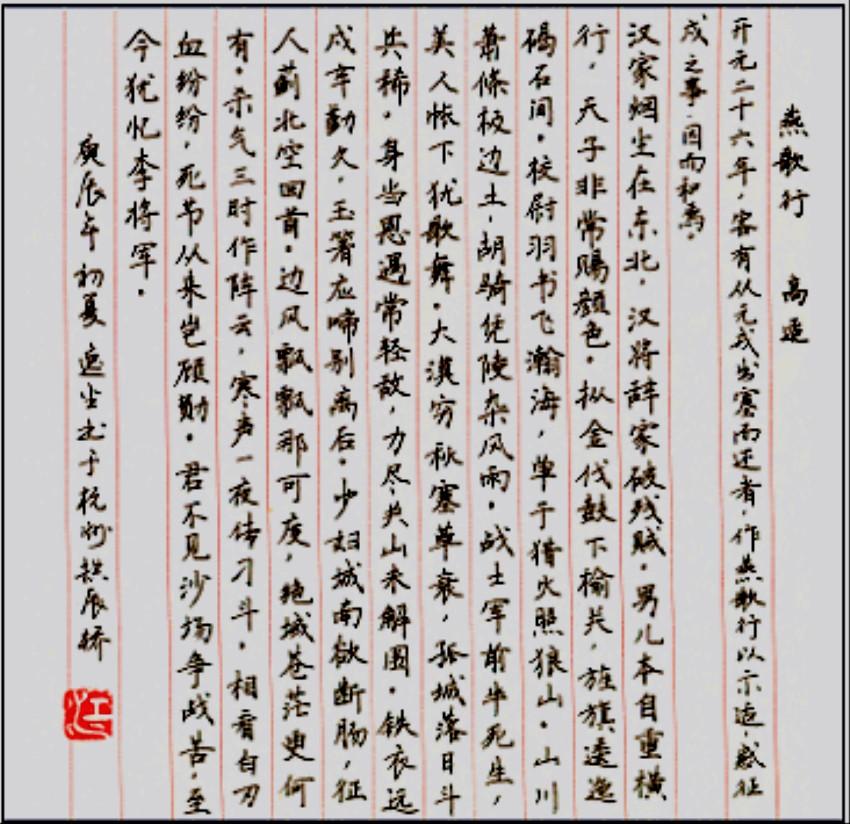 燕歌行 高适
开元二十六年，客有从元戎出塞而还者，作燕歌行以示适，感征
戍之事，因而和焉。
汉家烟尘在东北，汉将辞家破残贼。男儿本自重横
行，天子非常赐颜色。摐金伐鼓下榆关，旌旗逶迤
碣石间。校尉羽书飞瀚海，单于猎火照狼山。山川
萧條极边土，胡骑凭陵杂风雨。战士军前半死生，
美人帐下犹歌舞。大漠穷秋塞草衰，孤城落日斗
兵稀。身当恩遇常轻敌，力尽关山未解围。铁衣远
戍辛勤久，玉箸应啼别离后。少妇城南欲断肠，征
人蓟北空回首。边风飘飘那可度，绝域苍茫更何
有。杀气三时作阵云，寒声一夜传刁斗。相看白刃
血纷纷，死节从来岂顾勋。君不见沙场争战苦，至
今犹忆李将军。
庚辰年初夏逸尘书于杭州拱辰桥
江